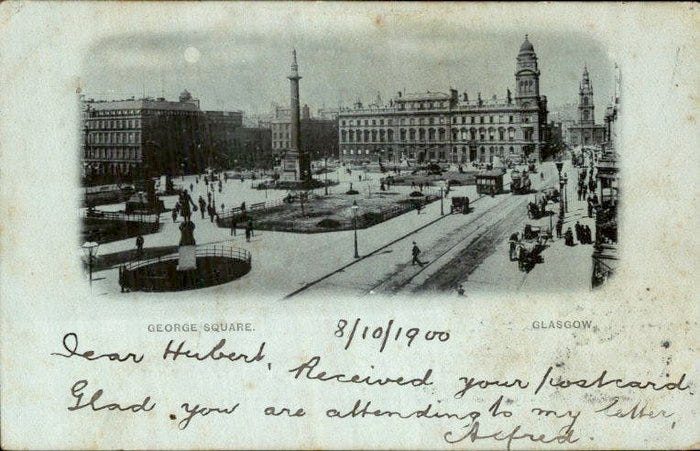 GEORGE SQUARE. 8/10/1900 GLASGOW.
Dear Hubert,
Received your postcard.
Glad you are attending to my letter,
Alfred.